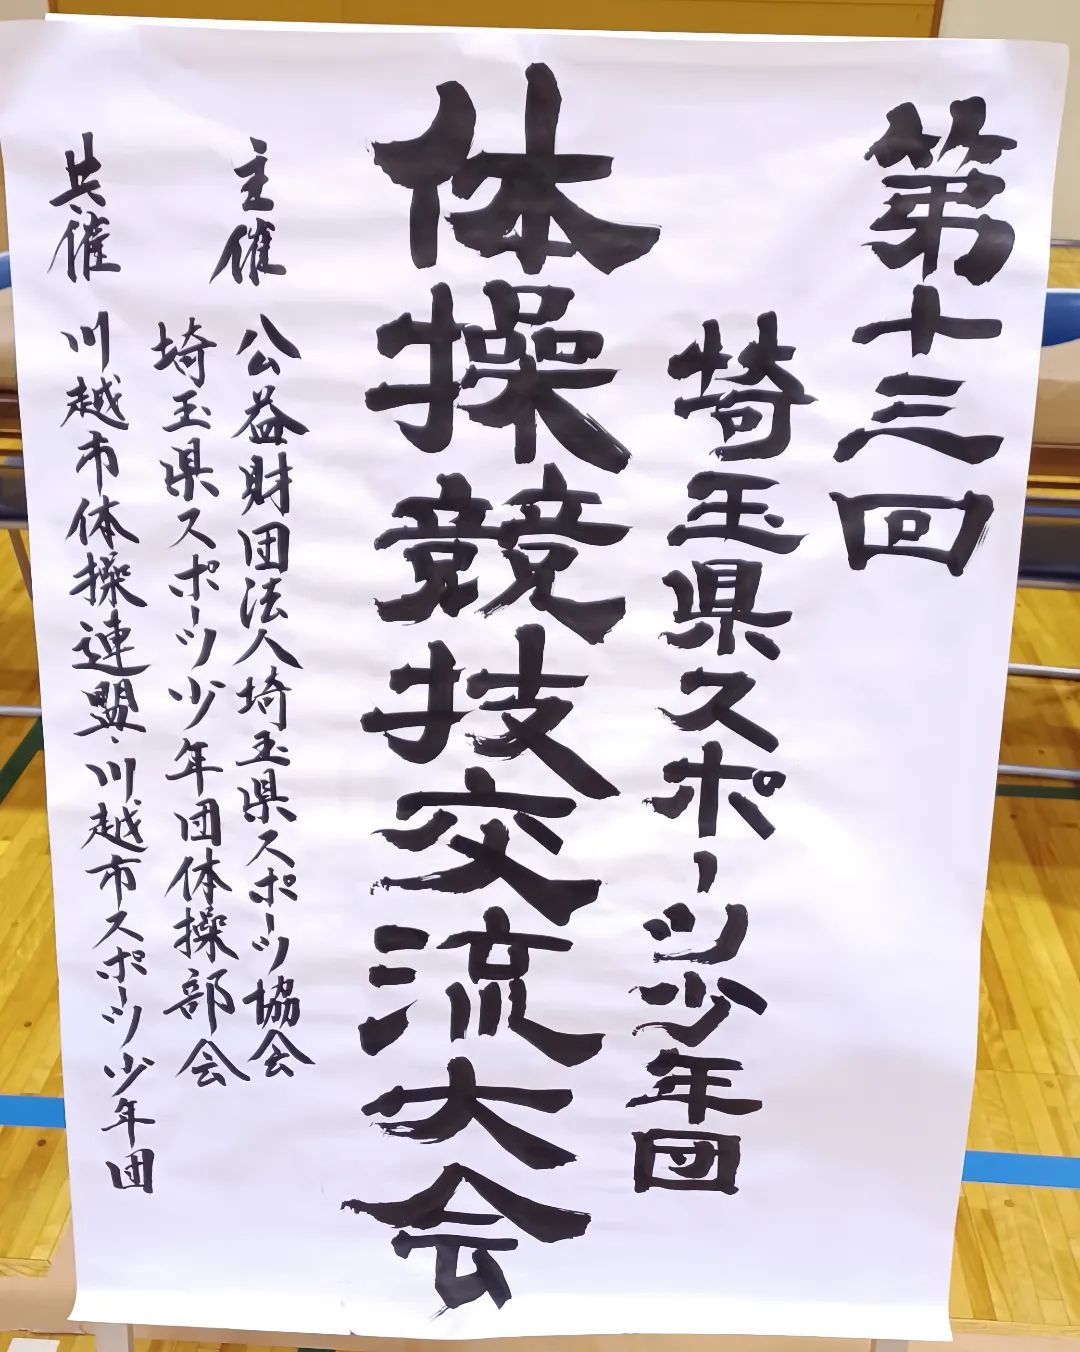 第十三回
埼玉県スポーツ少年団
体操競技交流大会
主催 公益財団法人埼玉県スポーツ協会
埼玉県スポーツ少年団体操部会
共催 川越市体操連盟・川越市スポーツ少年団